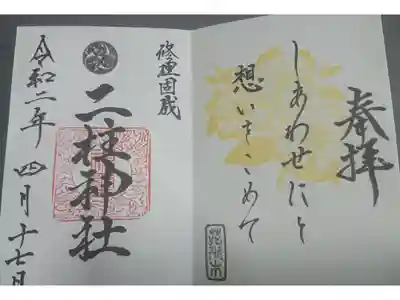 奉拝
しあわせにと
想いをこめて
修理固成
二柱神社
令和二年四月十七日